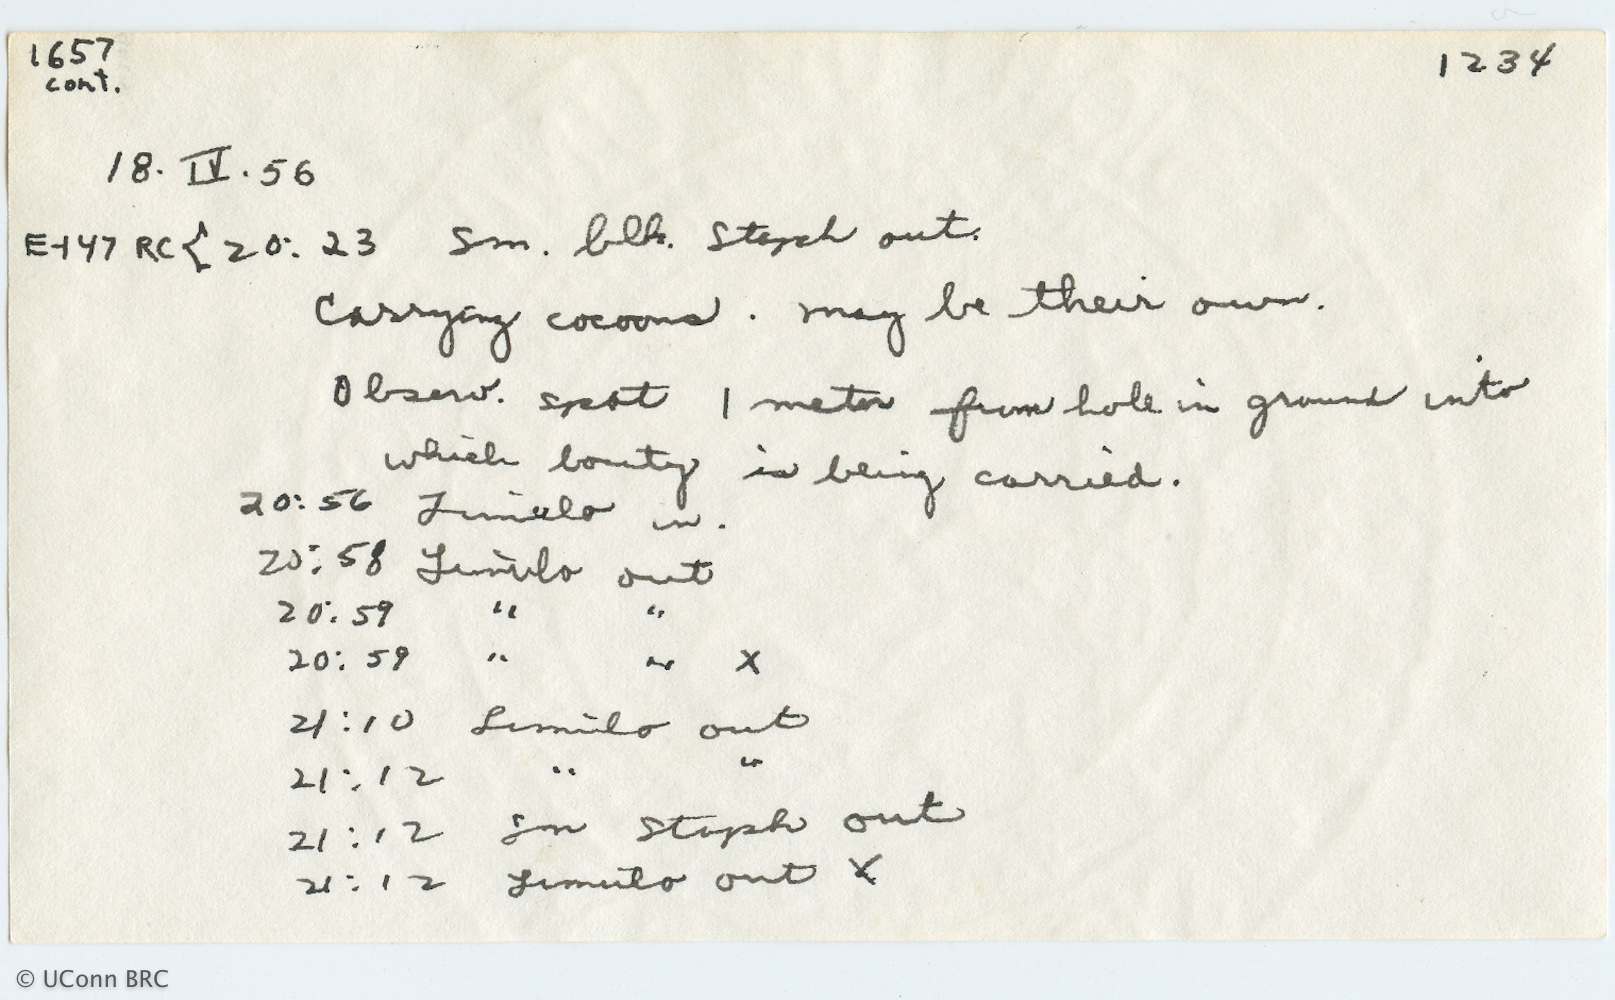 1657 1234
cont.
18. IV. 56
E-147 RC { 20:23 Sm. blk. Staph out.
Carrying cocoons. may be their own.
Observ. spot 1 meter from hole in ground into
which booty is being carried.
20:56 Limulo in.
20:58 Limulo out
20:59 " "
20:59 " " X
21:10 Limulo out
21:12 " "
21:12 Sm Staph out
21:12 Limulo out X
© UConn BRC